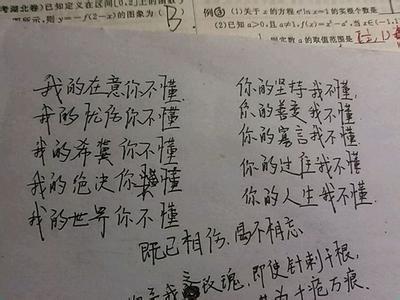 考湖北卷)已知定义在区间[0,2]上的函数
图所示,则 y=-f(2-x)的图象为( B
例③ (1)关于 x 的方程 eˣln x=1 的实根个数是
(2)已知 a>0,且 a≠1,f(x)=x²-aˣ,当 x∈(-1,
则实数 a 的取值范围是
我的在意你不懂
我的你不懂
我的希冀你不懂
我的绝决你懂
我的世界你不懂
你的坚持我不懂,
你的善变我不懂
你的寡言我不懂
你的过往我不懂
你的人生我不懂.
既已相伤,曷不相忘
我玫瑰,即使针刺千根,
千疮万痕.